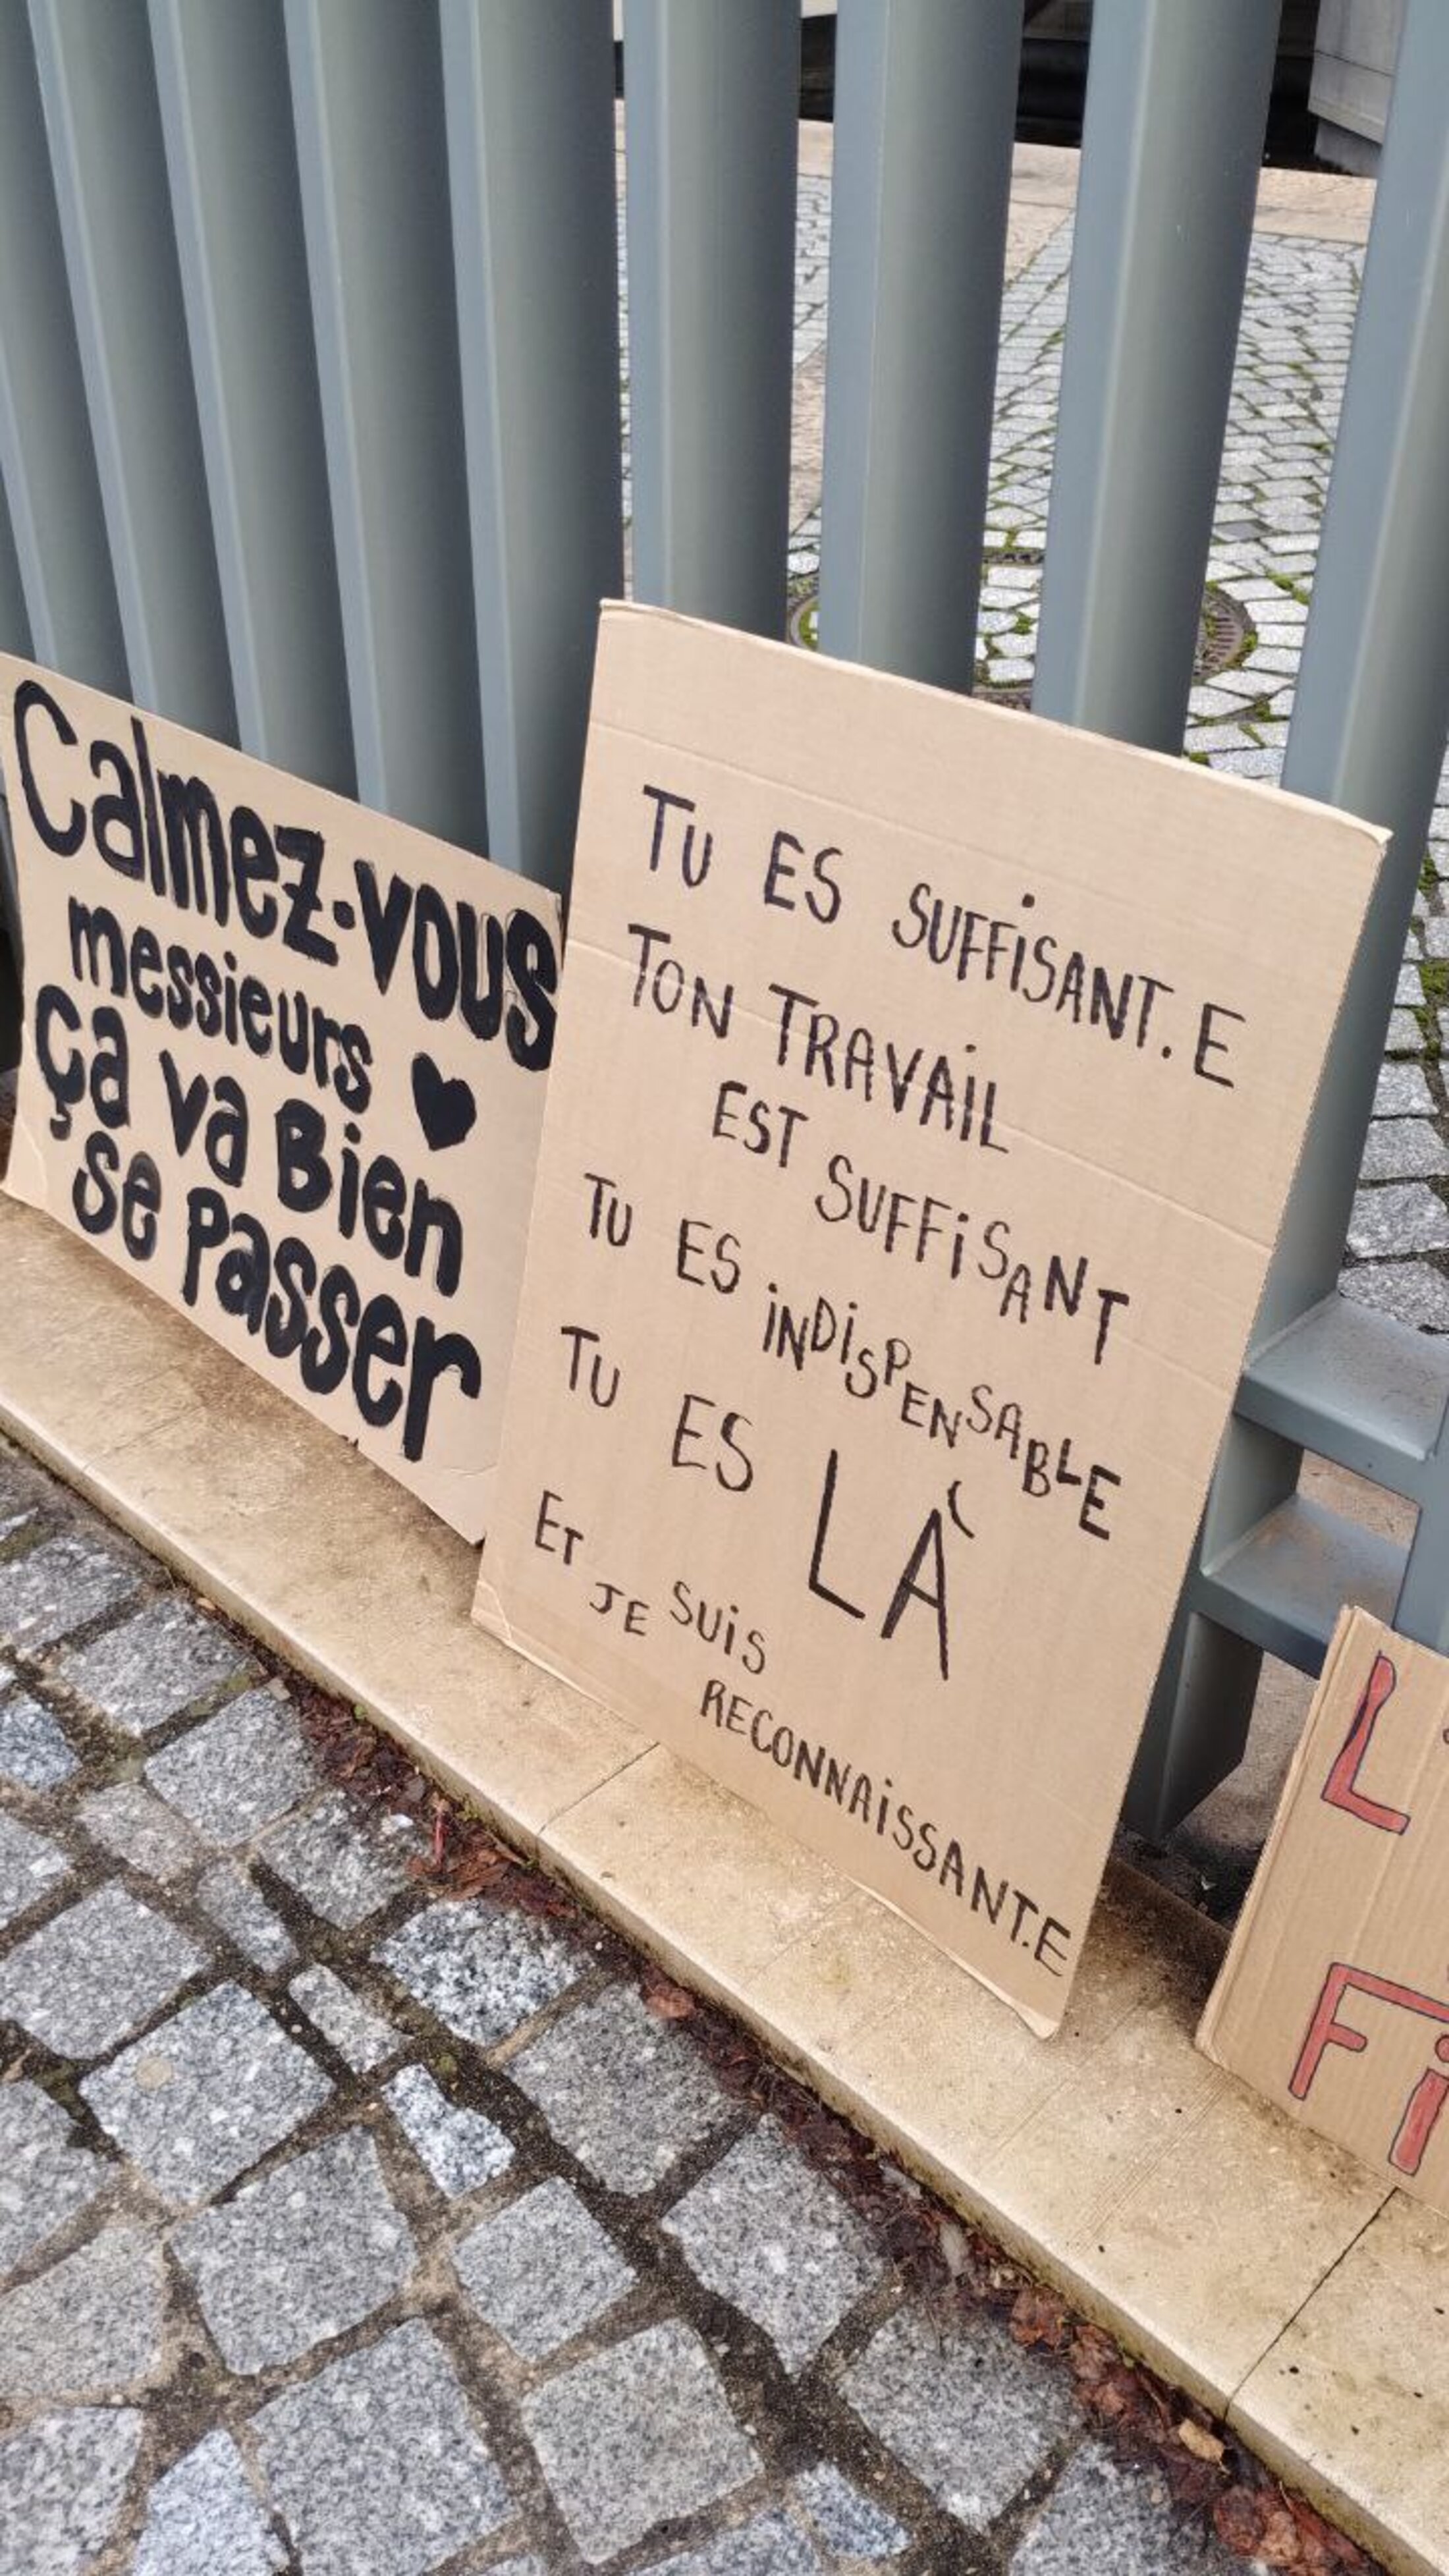 Calmez-vous
messieurs ♥
ça va Bien
se Passer
TU ES SUFFiSANT.E
TON TRAVAiL
EST SUFFiSANT
TU ES iNDiSPENSABLE
TU ES LÀ
ET JE SUiS
RECONNAiSSANT.E
L'
Fi